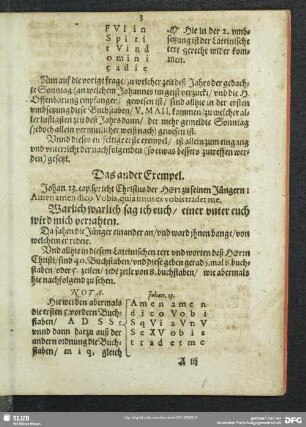 3
F V I i n
S p i r i t
t V i n d
o m i n i
c a d i e
Hie in der 2. vmb-
setzung ist der Lateinische
text gerecht wider kom-
men.
Nun auff die vorige frage / zu welcher zeit deß Jahrs der gedach-
te Sonntag (an welchem Johannes im geist verzuckt / vnd die H.
Offenbarung empfangen) gewesen ist / sind allhie in der ersten
vmbsetzung diese Buchstaben / V, M A I I. kommen / zu welcher al-
ler lustigsten zeit deß Jahrs dann / der mehr gemeldte Sonntag
(jedoch allein vermutlicher weiß nach) gewesen ist.
Vnnd dieses einfeltige erste exempel / ist allein zum eingang
vnd vnterricht der nachfolgenden (so etwas bessers zutreffen wer-
den) gesetzt.
Das ander Exempel.
Johan. 13. cap. spricht Christus der HErr zu seinen Jüngern:
Amen amen dico Vobis, quia unus ex vobis tradet me.
Warlich warlich sag ich euch / einer vnter euch
wird mich verrahten.
Da sahen die Jünger einander an / vnd ward jhnen bange / von
welchem er redete.
Vnd allhie in diesem Lateinischen text vnd worten des HErrn
Christi / sind 40. Buchstaben / vnd diese geben gerad 5. mal 8. buch-
staben / oder 5. zeilen / jede zeile von 8. buchstaben / wie abermals
hie nachfolgend zu sehen.
NOTA.
Hie werden abermals
die ersten 5. vordern Buch-
staben / A D S S t.
vnnd dann darzu auß der
andern ordnung die Buch-
staben / m i q, gleich
Johan. 13.
A m e n a m e n
d i c o V o b i
S q V i a V n V
S e X V o b i s
t r a d e t m e
A iij
SLUB
Wir führen Wissen.
DFG